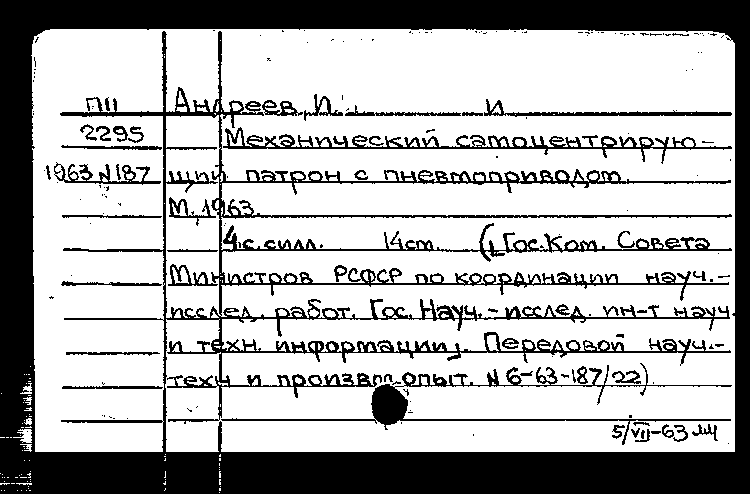 П11 Андреев, И. и
2295 Механический самоцентрирую-
1963 N187 щий патрон с пневмоприводом.
М., 1963.
4 с. с илл. 14 см. (Гос. Ком. Совета
Министров РСФСР по координации науч.-
исслед. работ. Гос. Науч.-исслед. ин-т науч.
и техн. информации). Передовой науч.-
техн и произвт. опыт. N 6-63-187/22)
5/VII-63